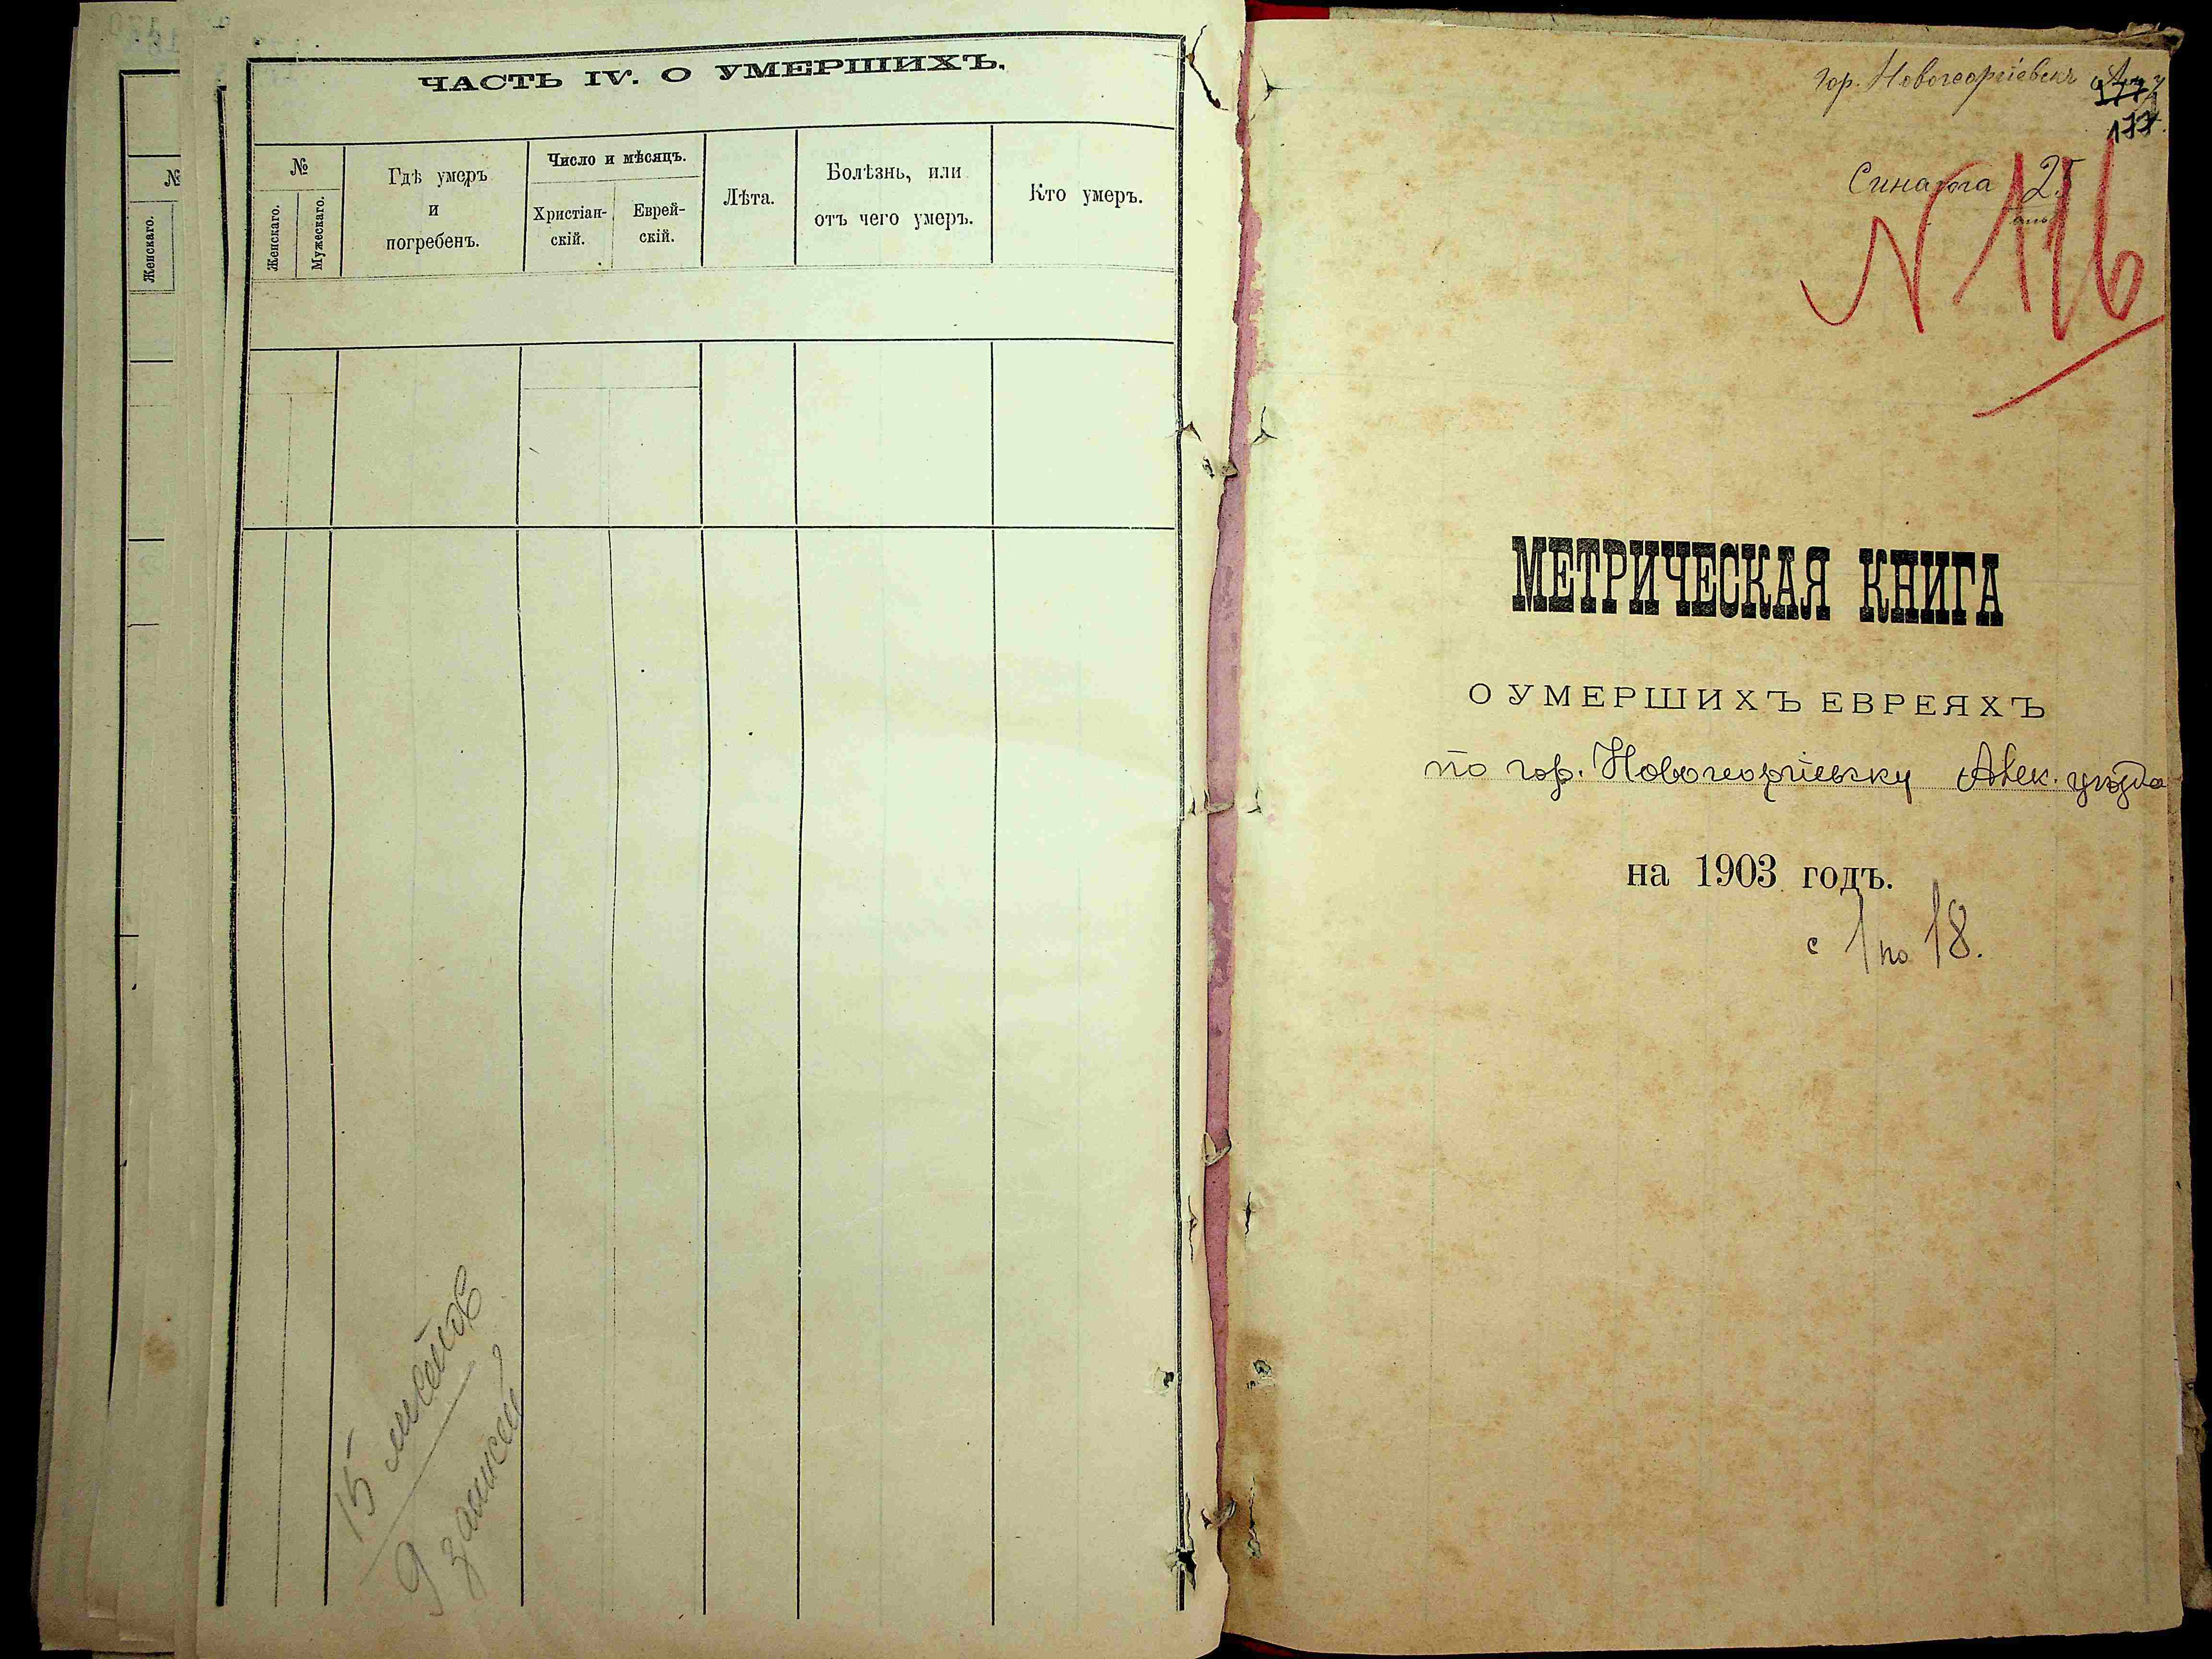 ЧАСТЬ IV. О УМЕРШИХЪ.
№
Женскаго.
Мужескаго.
Гдѣ умеръ
и
погребенъ.
Число и мѣсяцъ.
Христіан-
скій.
Еврей-
скій.
Лѣта.
Болѣзнь, или
отъ чего умеръ.
Кто умеръ.
№
Женскаго.
15 листов
9 записей
гор. Новогеоргіевскъ
177
Синагога 25
N 116
МЕТРИЧЕСКАЯ КНИГА
О УМЕРШИХЪ ЕВРЕЯХЪ
по гор. Новогеоргіевску Алек. уѣзда
на 1903 годъ.
с 1 по 18.